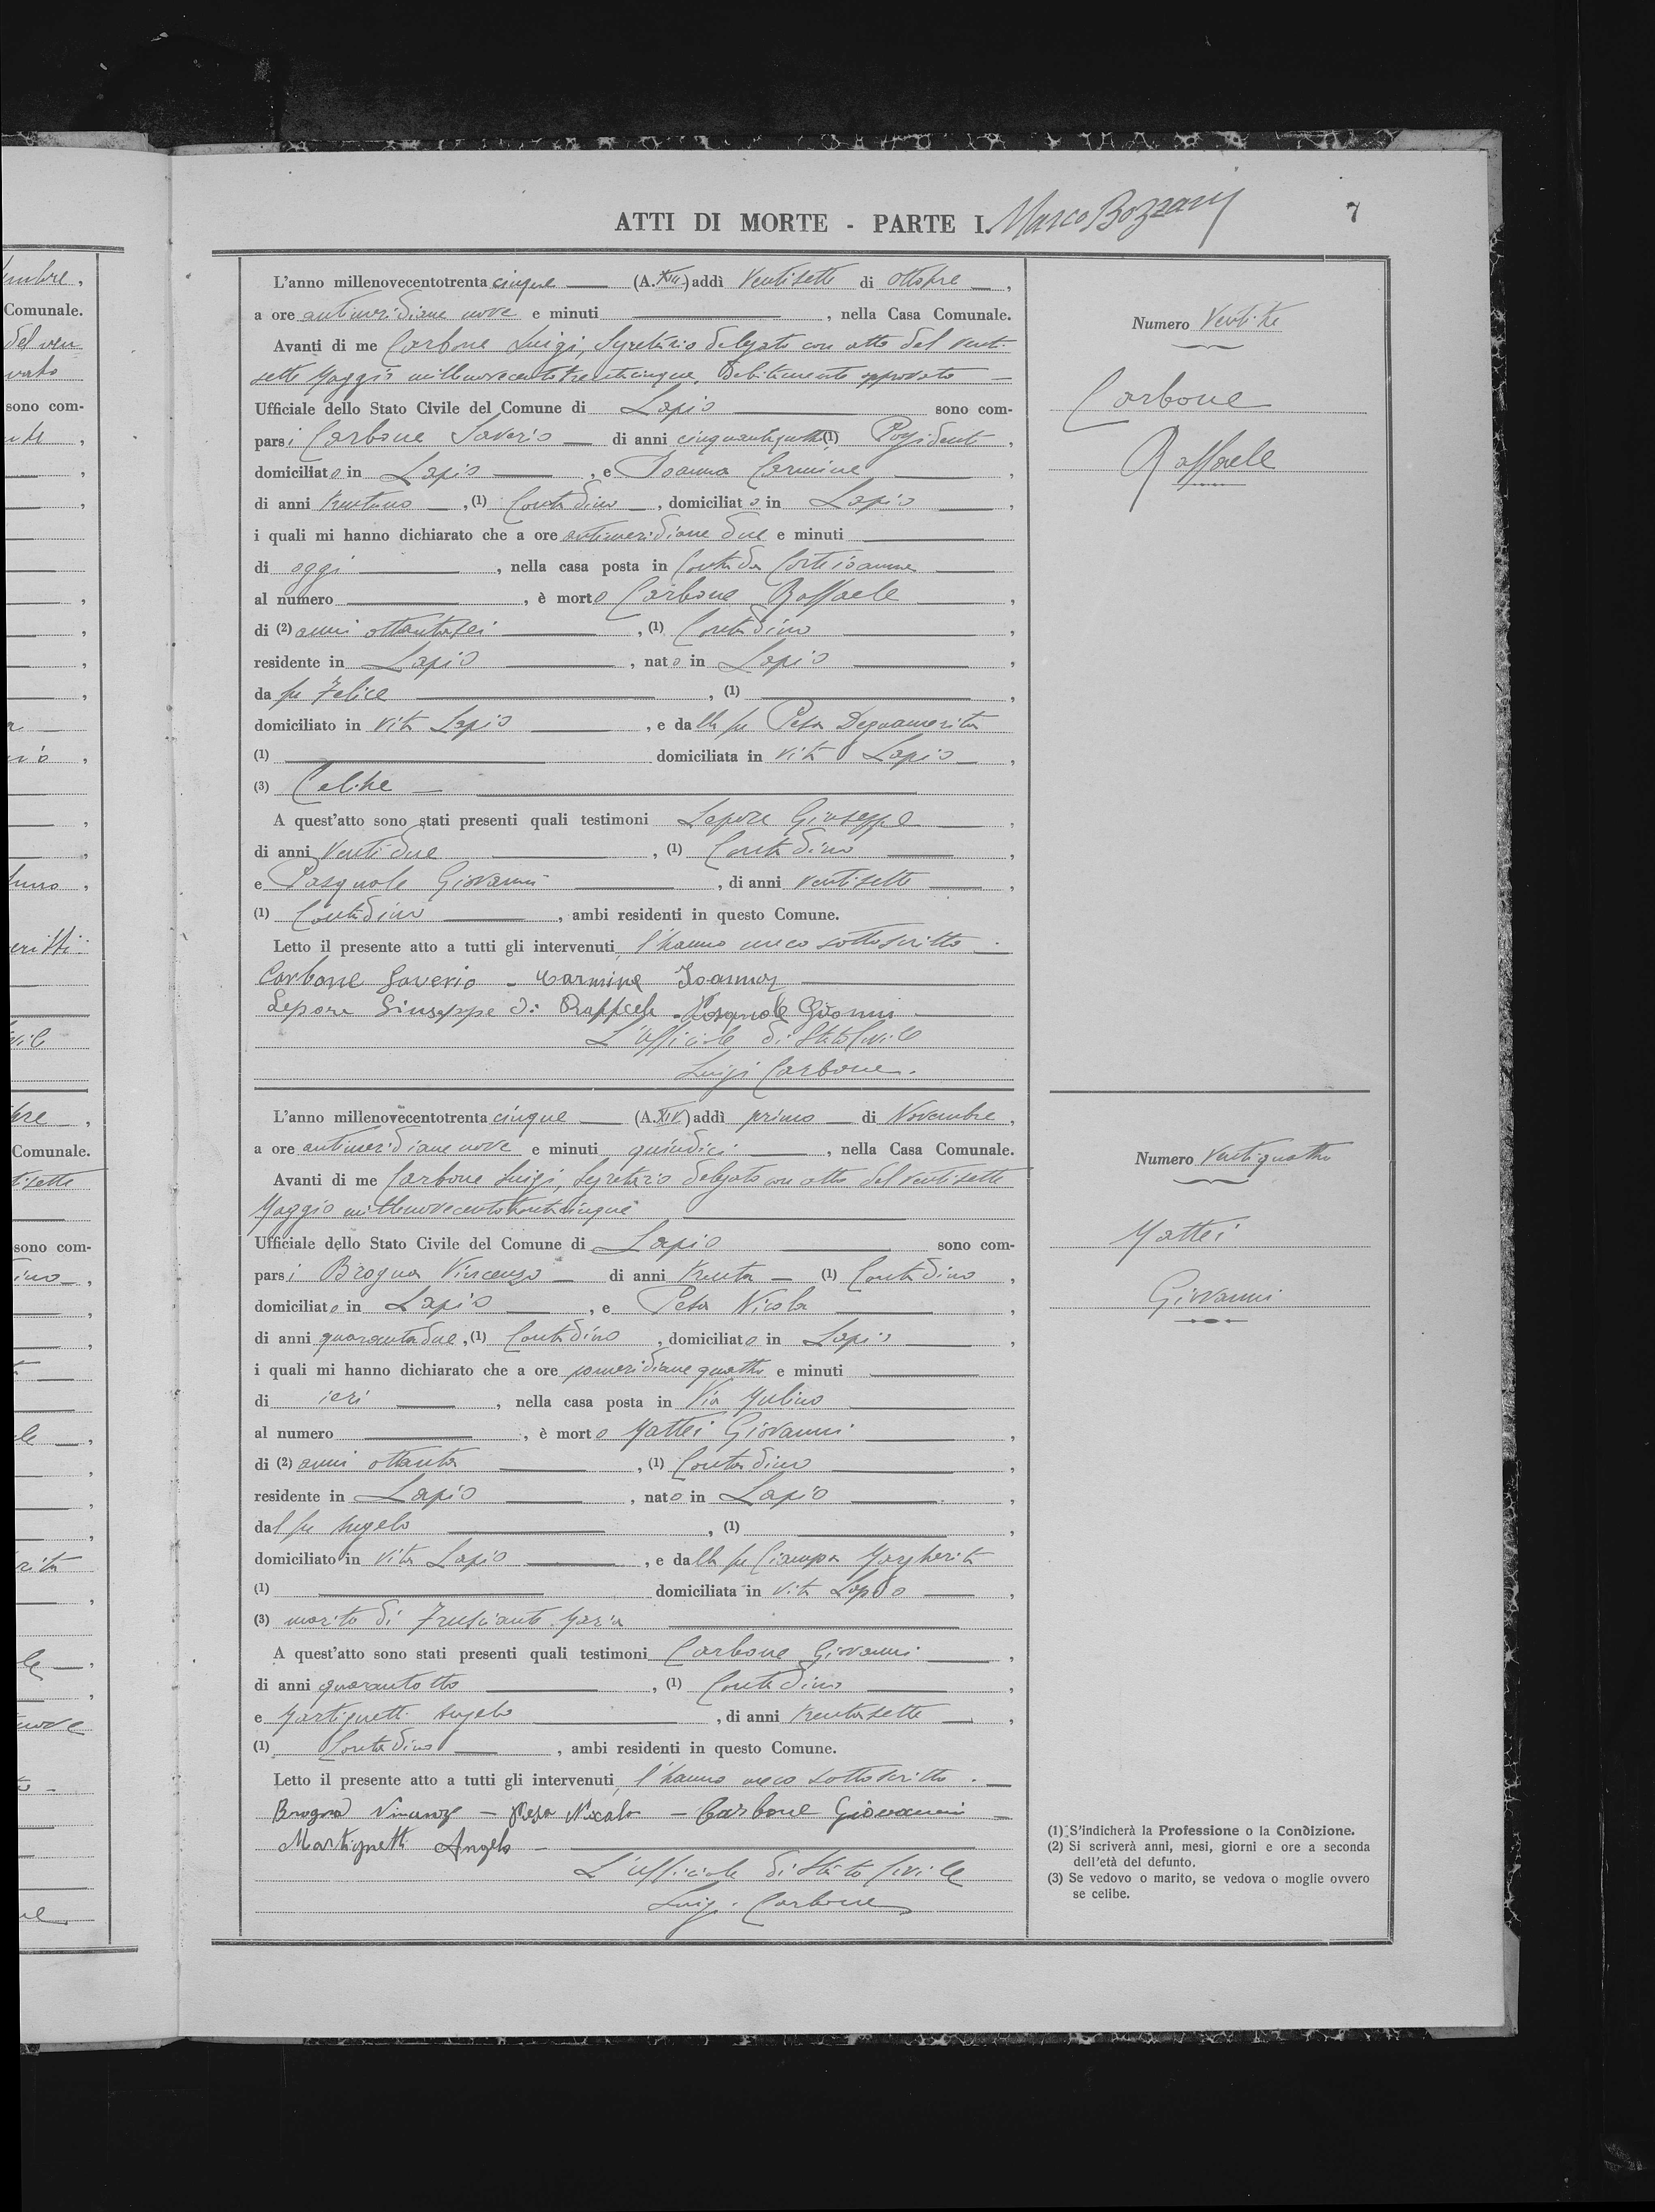 ATTI DI MORTE - PARTE I. Marco Bozzari
7
L'anno millenovecentotrenta cinque (A. XIII) addì Ventisette di ottobre,
a ore antimeridiane nove e minuti , nella Casa Comunale.
Avanti di me Carbone Luigi, Segretario delegato con atto del venti-
sette Maggio millenovecentotrentacinque, debitamente approvato
Ufficiale dello Stato Civile del Comune di Lapio sono com-
parsi Carbone Saverio di anni (1) Possidente,
domiciliato in Lapio, e Ioanna Carmine,
di anni trentuno, (1) Contadino, domiciliato in Lapio,
i quali mi hanno dichiarato che a ore antimeridiane due e minuti
di oggi, nella casa posta in Contrada
al numero , è morto Carbone Raffaele,
di (2) anni ottantasei, (1) Contadino,
residente in Lapio, nato in Lapio,
da fu Felice, (1) ,
domiciliato in vita Lapio, e dalla fu Pesa Degnamerita
(1) domiciliata in vita Lapio,
(3) Celibe
A quest'atto sono stati presenti quali testimoni Lepore Giuseppe,
di anni Ventidue, (1) Contadino,
e Pasquale Giovanni, di anni ventisette,
(1) Contadino, ambi residenti in questo Comune.
Letto il presente atto a tutti gli intervenuti, l'hanno meco sottoscritto.
Carbone Saverio - Carmine Ioanna
Lepore Giuseppe di Raffaele - Pasquale Giovanni
L'Ufficiale di Stato Civile
Luigi Carbone.
Numero Ventitre
Carbone
Raffaele
L'anno millenovecentotrenta cinque (A. XIV) addì primo di Novembre,
a ore antimeridiane nove e minuti quindici, nella Casa Comunale.
Avanti di me Carbone Luigi, Segretario delegato con atto del ventisette
Maggio millenovecentotrentacinque
Ufficiale dello Stato Civile del Comune di Lapio sono com-
parsi Brogna Vincenzo di anni trenta (1) Contadino,
domiciliato in Lapio, e Pesa Nicola,
di anni quarantadue, (1) Contadino, domiciliato in Lapio,
i quali mi hanno dichiarato che a ore pomeridiane quattro e minuti
di ieri, nella casa posta in Via Mulino
al numero , è morto Mattei Giovanni,
di (2) anni ottanta, (1) Contadino,
residente in Lapio, nato in Lapio,
dal fu Angelo, (1) ,
domiciliato in vita Lapio, e dalla fu Ciampa Margherita
(1) domiciliata in vita Lapio,
(3) marito di Frusciante Maria
A quest'atto sono stati presenti quali testimoni Carbone Giovanni,
di anni quarantotto, (1) Contadino,
e Martignetti Angelo, di anni trentasette,
(1) Contadino, ambi residenti in questo Comune.
Letto il presente atto a tutti gli intervenuti, l'hanno meco sottoscritto.
Brogna Vincenzo - Pesa Nicola - Carbone Giovanni
Martignetti Angelo
L'ufficiale di Stato Civile
Luigi Carbone
Numero Ventiquattro
Mattei
Giovanni
(1) S'indicherà la Professione o la Condizione.
(2) Si scriverà anni, mesi, giorni e ore a seconda
dell'età del defunto.
(3) Se vedovo o marito, se vedova o moglie ovvero
se celibe.